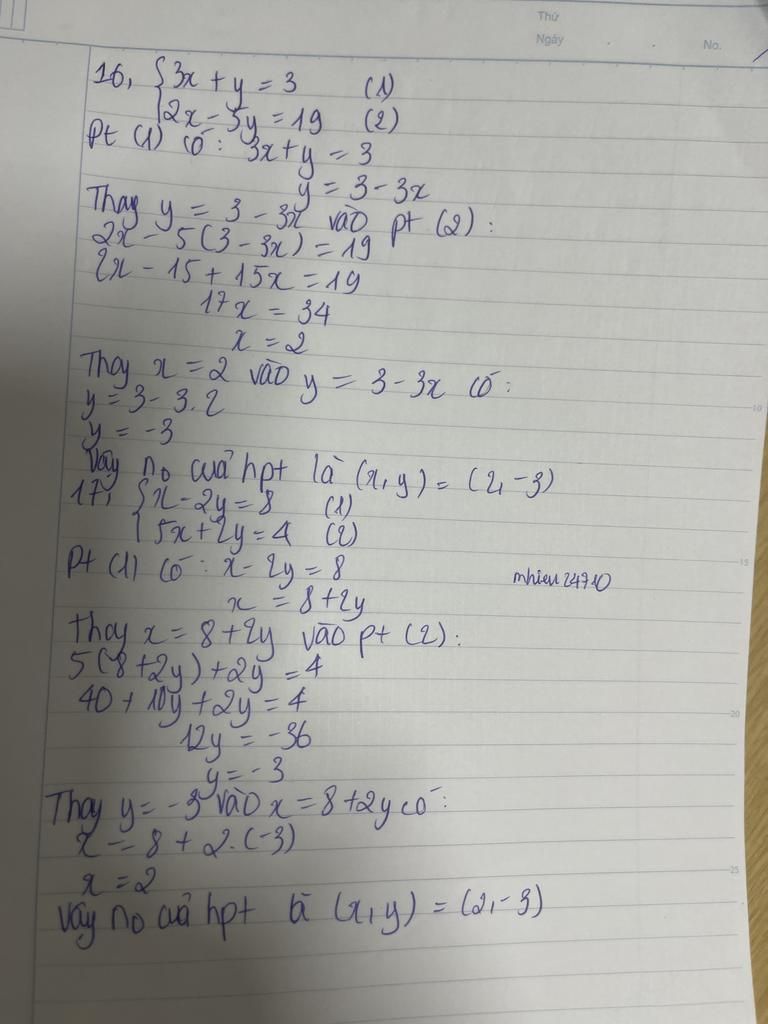 Thứ
Ngày . . No.
16, { 3x + y = 3 (1)
2x - 5y = 19 (2)
Pt (1) có: 3x + y = 3
y = 3 - 3x
Thay y = 3 - 3x vào pt (2):
2x - 5(3 - 3x) = 19
2x - 15 + 15x = 19
17x = 34
x = 2
Thay x = 2 vào y = 3 - 3x có:
y = 3 - 3.2
y = -3
Vậy no của hpt là (x, y) = (2, -3)
17, { x - 2y = 8 (1)
5x + 2y = 4 (2)
Pt (1) có: x - 2y = 8
x = 8 + 2y
Thay x = 8 + 2y vào pt (2):
5(8 + 2y) + 2y = 4
40 + 10y + 2y = 4
12y = -36
y = -3
Thay y = -3 vào x = 8 + 2y có:
x = 8 + 2.(-3)
x = 2
Vậy no của hpt là (x, y) = (2, -3)
10
15
20
25